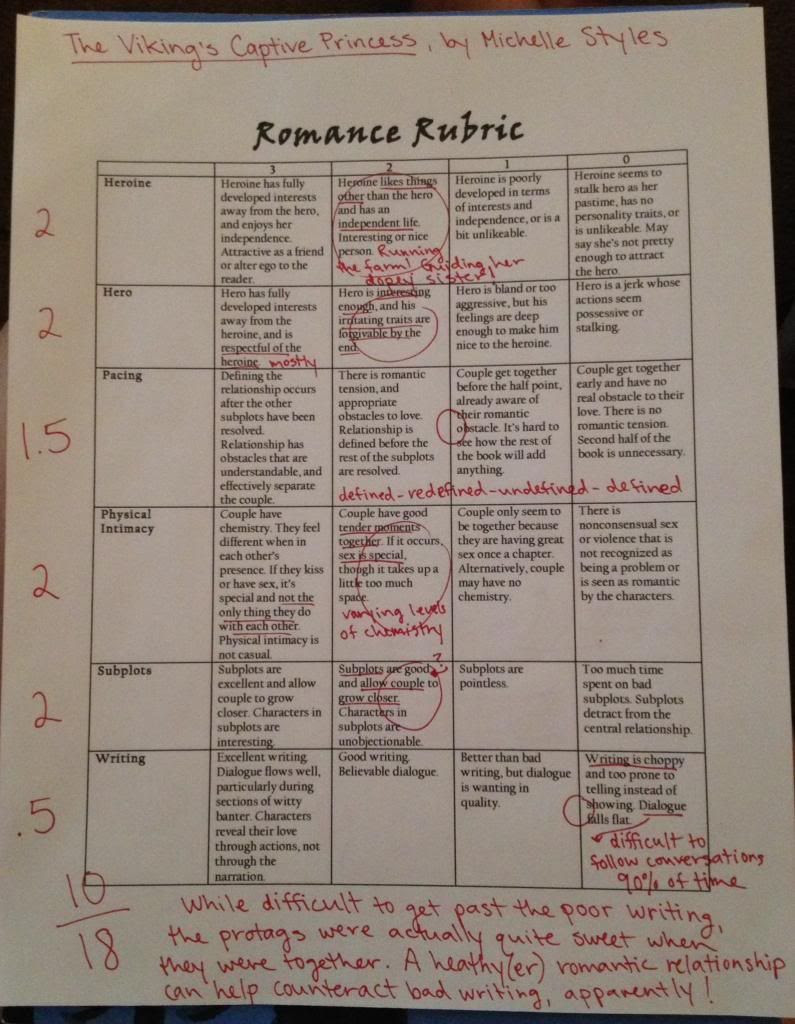 The Viking's Captive Princess, by Michelle Styles
Romance Rubric
3 2 1 0
2
Heroine
Heroine has fully
developed interests
away from the hero,
and enjoys her
independence.
Attractive as a friend
or alter ego to the
reader.
Heroine likes things
other than the hero
and has an
independent life.
Interesting or nice
person. Running
the farm! Guiding her
dopey sister!
Heroine is poorly
developed in terms
of interests and
independence, or is a
bit unlikeable.
Heroine seems to
stalk hero as her
pastime, has no
personality traits, or
is unlikeable. May
say she's not pretty
enough to attract
the hero.
2
Hero
Hero has fully
developed interests
away from the
heroine, and is
respectful of the
heroine. mostly
Hero is interesting
enough, and his
irritating traits are
forgivable by the
end.
Hero is bland or too
aggressive, but his
feelings are deep
enough to make him
nice to the heroine.
Hero is a jerk whose
actions seem
possessive or
stalking.
1.5
Pacing
Defining the
relationship occurs
after the other
subplots have been
resolved.
Relationship has
obstacles that are
understandable, and
effectively separate
the couple.
There is romantic
tension, and
appropriate
obstacles to love.
Relationship is
defined before the
rest of the subplots
are resolved.
Couple get together
before the half point,
already aware of
their romantic
obstacle. It's hard to
see how the rest of
the book will add
anything.
Couple get together
early and have no
real obstacle to their
love. There is no
romantic tension.
Second half of the
book is unnecessary.
defined-redefined-undefined-defined
2
Physical
Intimacy
Couple have
chemistry. They feel
different when in
each other's
presence. If they kiss
or have sex, it's
special and not the
only thing they do
with each other.
Physical intimacy is
not casual.
Couple have good
tender moments
together. If it occurs,
sex is special,
though it takes up a
little too much
space.
varying levels
of chemistry
Couple only seem to
be together because
they are having great
sex once a chapter.
Alternatively, couple
may have no
chemistry.
There is
nonconsensual sex
or violence that is
not recognized as
being a problem or
is seen as romantic
by the characters.
2
Subplots
Subplots are
excellent and allow
couple to grow
closer. Characters in
subplots are
interesting.
Subplots are good ?
and allow couple to
grow closer.
Characters in
subplots are
unobjectionable.
Subplots are
pointless.
Too much time
spent on bad
subplots. Subplots
detract from the
central relationship.
.5
Writing
Excellent writing.
Dialogue flows well,
particularly during
sections of witty
banter. Characters
reveal their love
through actions, not
through the
narration.
Good writing.
Believable dialogue.
Better than bad
writing, but dialogue
is wanting in
quality.
Writing is choppy
and too prone to
telling instead of
showing. Dialogue
falls flat.
difficult to
follow conversations
90% of time
10
18
While difficult to get past the poor writing,
the protags were actually quite sweet when
they were together. A heathy(er) romantic relationship
can help counteract bad writing, apparently!